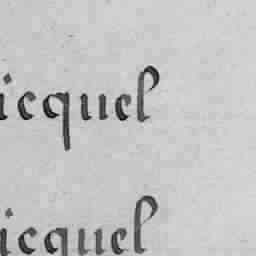 icquel
icquel